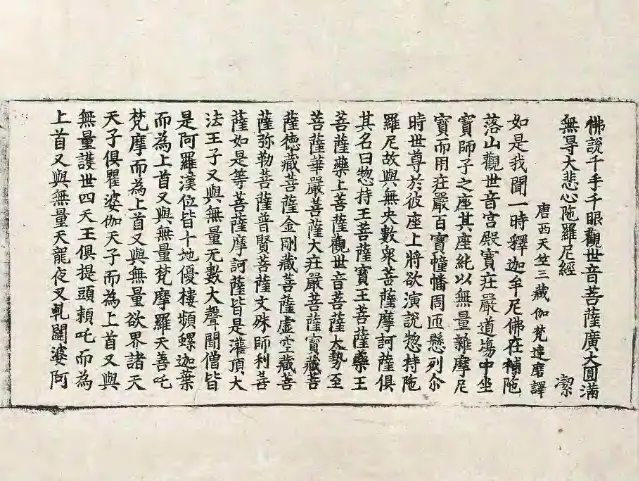 佛說千手千眼觀世音菩薩廣大圓滿
無㝵大悲心陁羅尼經　潔
唐西天竺三藏伽梵達磨譯
如是我聞一時釋迦牟尼佛在補陁
落山觀世音宮殿寶莊嚴道場中坐
寶師子之座其座純以無量雜摩尼
寶而用莊嚴百寶幢幡周迊懸列尒
時世尊於彼座上將欲演說惣持陁
羅尼故與無央數衆菩薩摩訶薩俱
其名曰惣持王菩薩寶王菩薩藥王
菩薩藥上菩薩觀世音菩薩大勢至
菩薩華嚴菩薩大莊嚴菩薩寶藏菩
薩德藏菩薩金剛藏菩薩虛空藏菩
薩弥勒菩薩普賢菩薩文殊師利菩
薩如是等菩薩摩訶薩皆是灌頂大
法王子又與無量无數大聲聞僧皆
是阿羅漢位皆十地優樓頻螺迦葉
而為上首又與無量梵摩羅天善吒
梵摩而為上首又與無量欲界諸天
天子俱瞿婆伽天子而為上首又與
無量護世四天王俱提頭賴吒而為
上首又與無量天龍夜叉乹闥婆阿